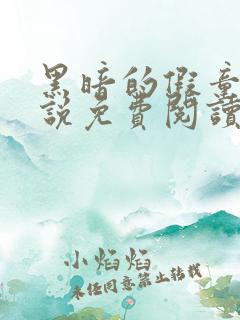 黑暗的假童
說免費閱讀
小焰焰
未任同意禁止转载